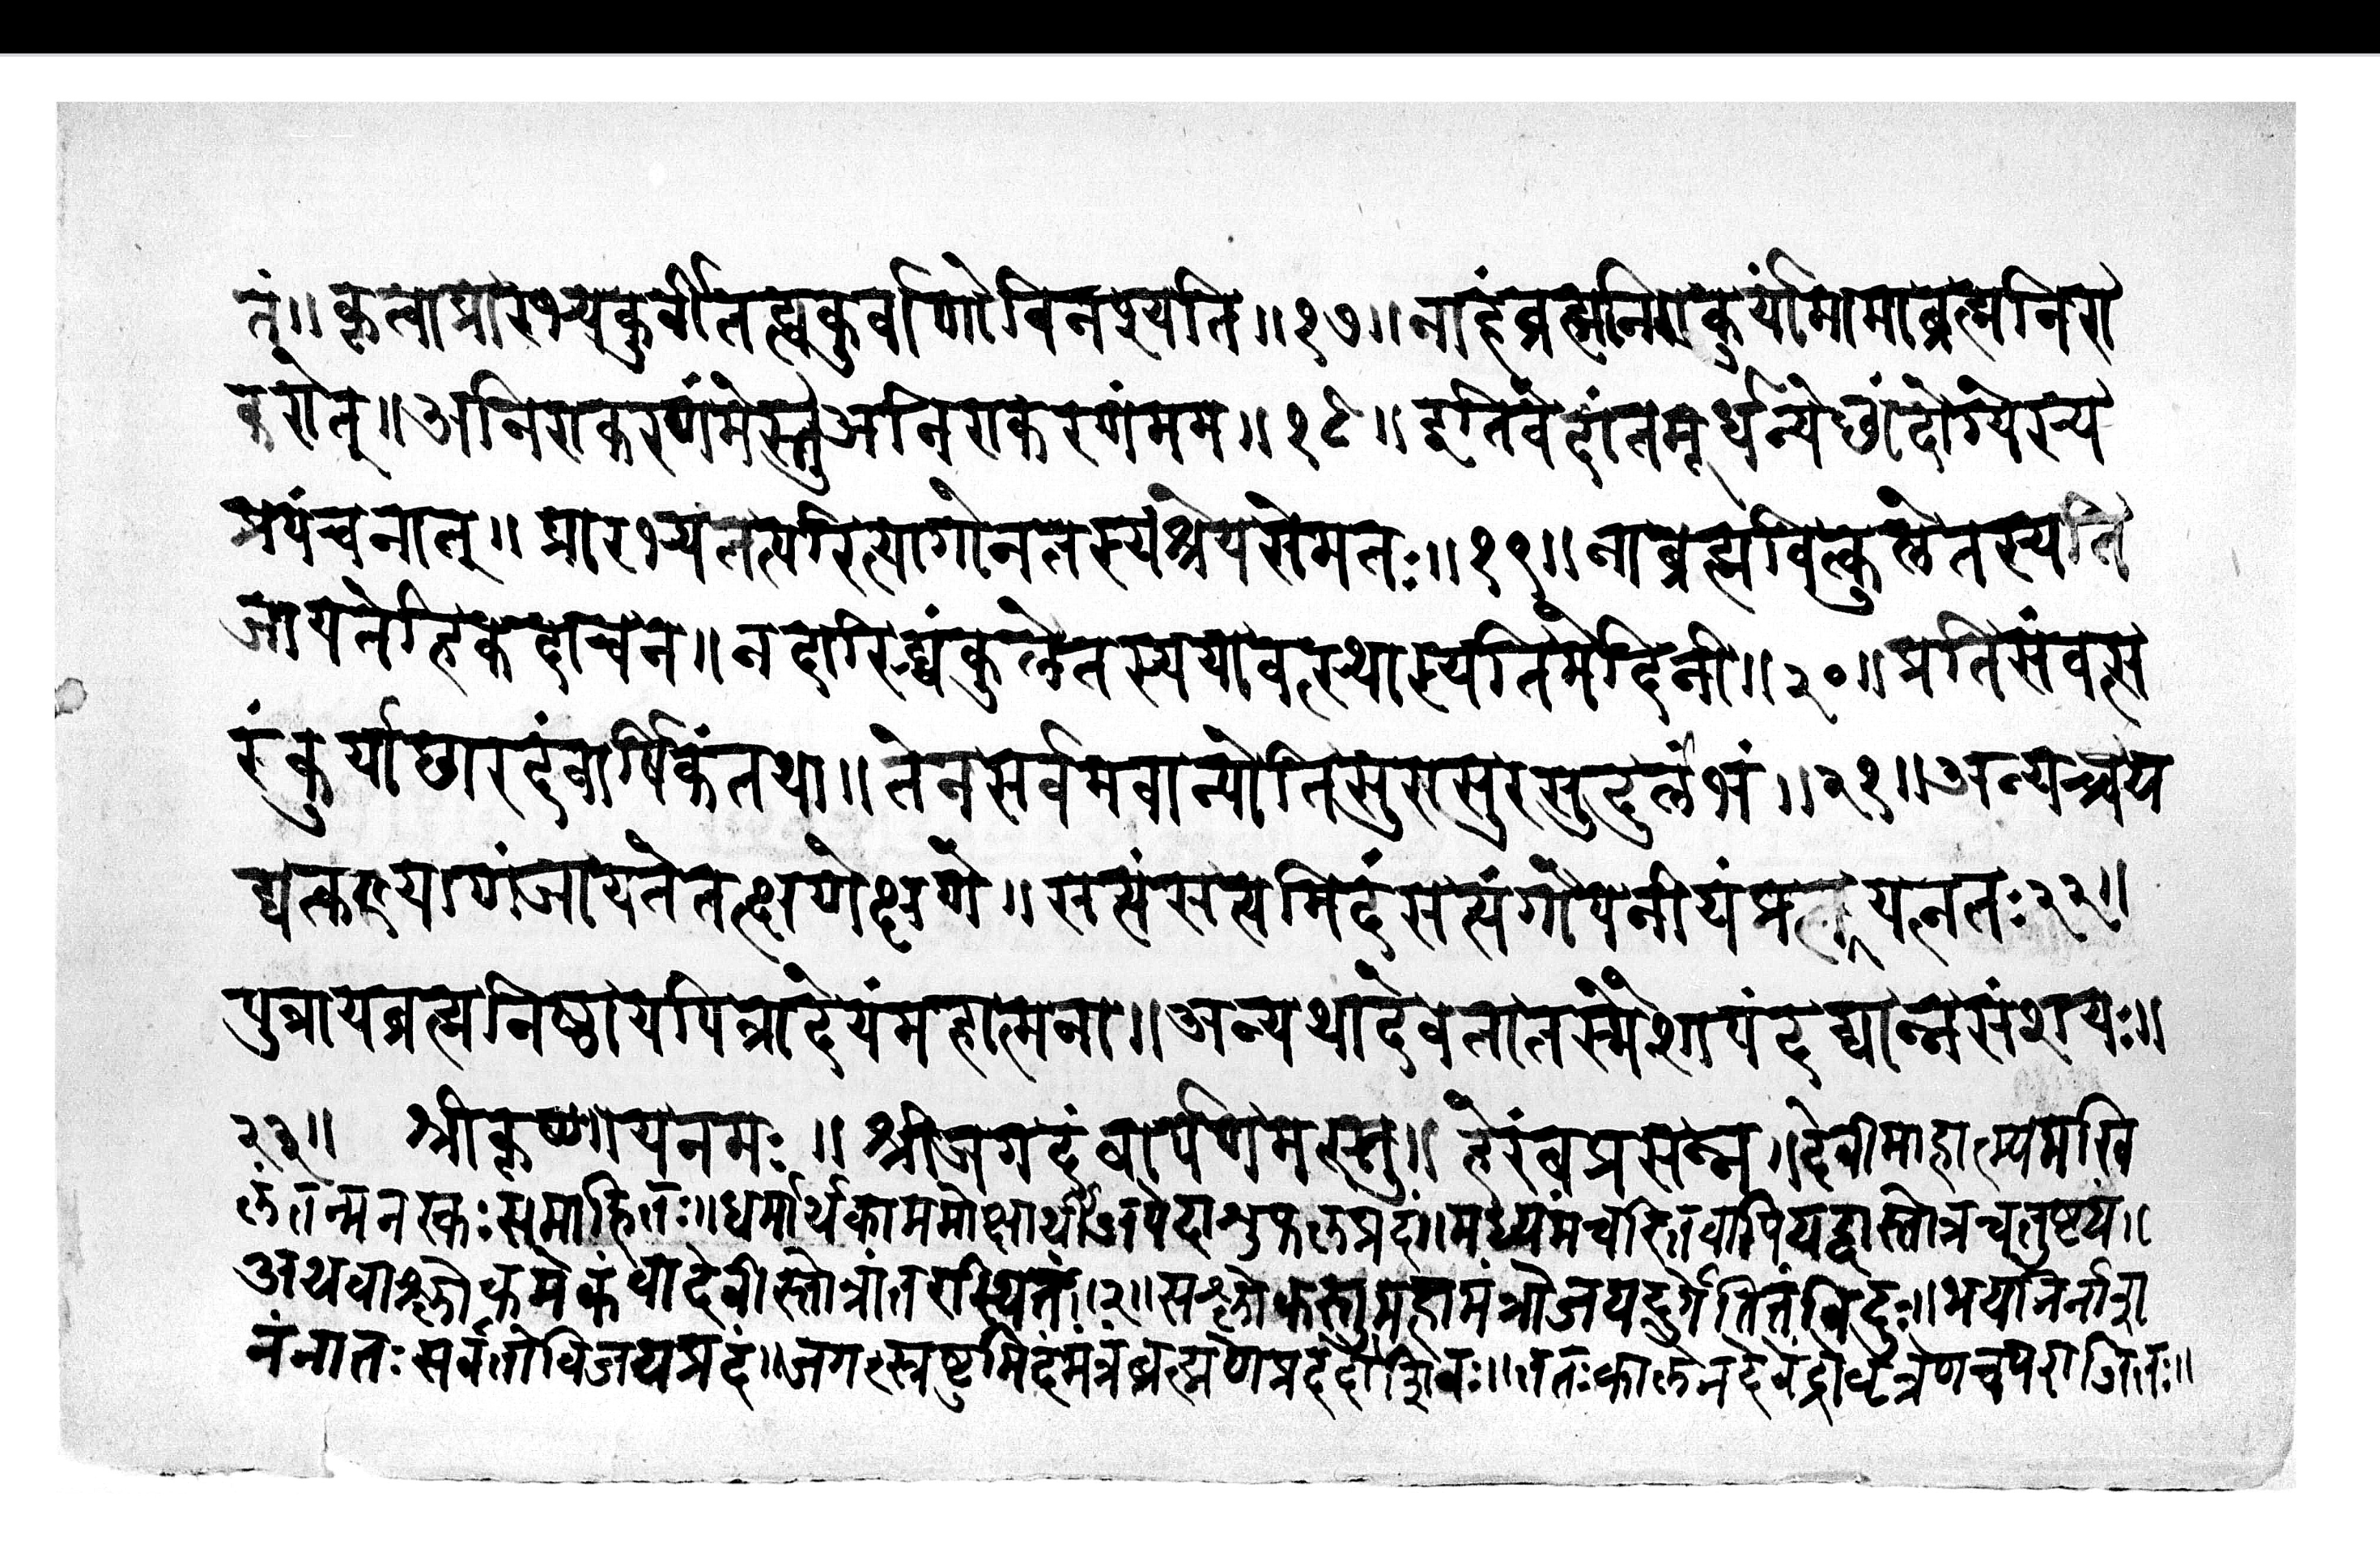 तं॥कृत्वाप्रारभ्यकुर्वीतह्यकुर्वाणोविनश्यति॥१७॥नाहंब्रह्मनिराकुर्यांमामाब्रह्मनिरा
करोत्॥अनिराकरणंमेस्तुअनिराकरणंमम॥१८॥इतिवेदांतमूर्धन्येछांदोग्येस्य
प्रपंचनात्॥प्रारभ्यतत्परित्यागोनतस्यश्रेयसेमतः॥१९॥नाब्रह्मवित्कुलेतस्यति
जायतेहिकदाचन॥नदारिद्र्यंकुलेतस्ययावत्स्थास्यतिमेदिनी॥२०॥प्रतिसंवत्स
रंकुर्याछारदंवार्षिकंतथा॥तेनसर्वमवाप्नोतिसुरासुरसुदुर्लभं॥२१॥अन्यच्चय
द्यत्कल्याणंजायतेतत्क्षणेक्षणे॥सत्यंसत्यमिदंसत्यंगोपनीयंप्रयत्नतः२२॥
पुत्रायब्रह्मनिष्ठायपित्रादेयंमहात्मना॥अन्यथादेवतातस्मैशापंदद्यान्नसंशयः॥
२३॥ श्रीकृष्णायनमः॥श्रीजगदंबार्पणमस्तु॥हेरंबप्रसन्न॥देवीमाहात्म्यमखि
लंतन्मनस्कःसमाहितः॥धर्मार्थकाममोक्षार्थीजपेदाशुफलप्रदं॥मध्यमंचरितंवापियद्वास्तोत्रचतुष्टयं॥
अथवाश्लोकमेकंवादेवीस्तोत्रांतरास्थितं॥२॥सश्लोकस्तुमहामंत्रोजयदुर्गेतितंविदुः॥भयानिर्नाश
नंनातःसर्वतोविजयप्रदं॥जगत्स्रष्टुमिदंमंत्रंब्रह्मणेप्रददौशिवः॥ततःकालेनदेवेंद्रोवृत्रेणचपराजितः॥